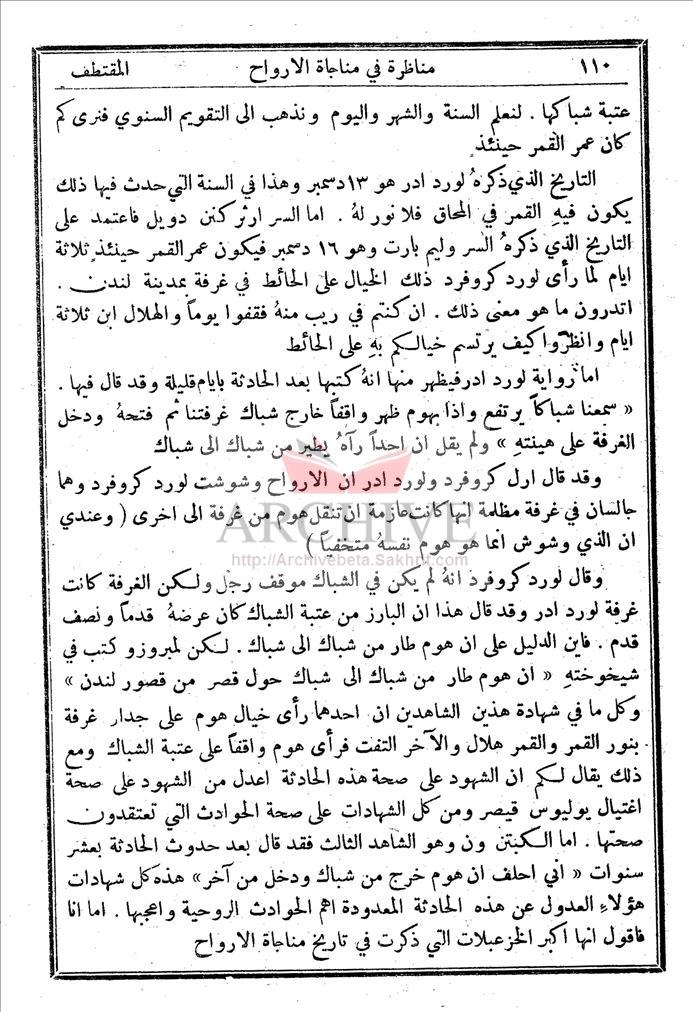 ١١٠ مناظرة في مناجاة الارواح المقتطف
عتبة شباكها . لنعلم السنة والشهر واليوم ونذهب الى التقويم السنوي فنرى كم
كان عمر القمر حينئذٍ
التاريخ الذي ذكرهُ لورد ادر هو ١٣ دسمبر وهذا في السنة التي حدث فيها ذلك
يكون فيهِ القمر في المحاق فلا نور لهُ . اما السر ارثر كنن دويل فاعتمد على
التاريخ الذي ذكرهُ السر وليم بارت وهو ١٦ دسمبر فيكون عمر القمر حينئذٍ ثلاثة
ايام لما رأى لورد كروفرد ذلك الخيال على الحائط في غرفة بمدينة لندن .
اتدرون ما هو معنى ذلك . ان كنتم في ريب منهُ فقفوا يوماً والهلال ابن ثلاثة
ايام وانظروا كيف يرتسم خيالكم بهِ على الحائط
اما رواية لورد ادر فيظهر منها انهُ كتبها بعد الحادثة بايام قليلة وقد قال فيها .
« سمعنا شباكاً يرتفع واذا بهوم ظهر واقفاً خارج شباك غرفتنا ثم فتحهُ ودخل
الغرفة على هينتهِ » ولم يقل ان احداً رآهُ يطير من شباك الى شباك
وقد قال ارل كروفرد ولورد ادر ان الارواح وشوشت لورد كروفرد وهما
جالسان في غرفة مظلمة انها كانت عازمة ان تنقل هوم من غرفة الى اخرى ( وعندي
ان الذي وشوش انما هو هوم نفسهُ متخفياً )
ARCHIVE
http://Archivebeta.Sakhrit.com
وقال لورد كروفرد انهُ لم يكن في الشباك موقف رجل ولكن الغرفة كانت
غرفة لورد ادر وقد قال هذا ان البارز من عتبة الشباك كان عرضهُ قدماً ونصف
قدم . فاين الدليل على ان هوم طار من شباك الى شباك . لكن لمبروزو كتب في
شيخوختهِ « ان هوم طار من شباك الى شباك حول قصر من قصور لندن »
وكل ما في شهادة هذين الشاهدين ان احدهما رأى خيال هوم على جدار غرفة
بنور القمر والقمر هلال والآخر التفت فرأى هوم واقفاً على عتبة الشباك ومع
ذلك يقال لكم ان الشهود على صحة هذه الحادثة اعدل من الشهود على صحة
اغتيال يوليوس قيصر ومن كل الشهادات على صحة الحوادث التي تعتقدون
صحتها . اما الكبتن ون وهو الشاهد الثالث فقد قال بعد حدوث الحادثة بعشر
سنوات « اني احلف ان هوم خرج من شباك ودخل من آخر » هذه كل شهادات
هؤلاء العدول عن هذه الحادثة المعدودة اهم الحوادث الروحية واعجبها . اما انا
فاقول انها اكبر الخزعبلات التي ذكرت في تاريخ مناجاة الارواح